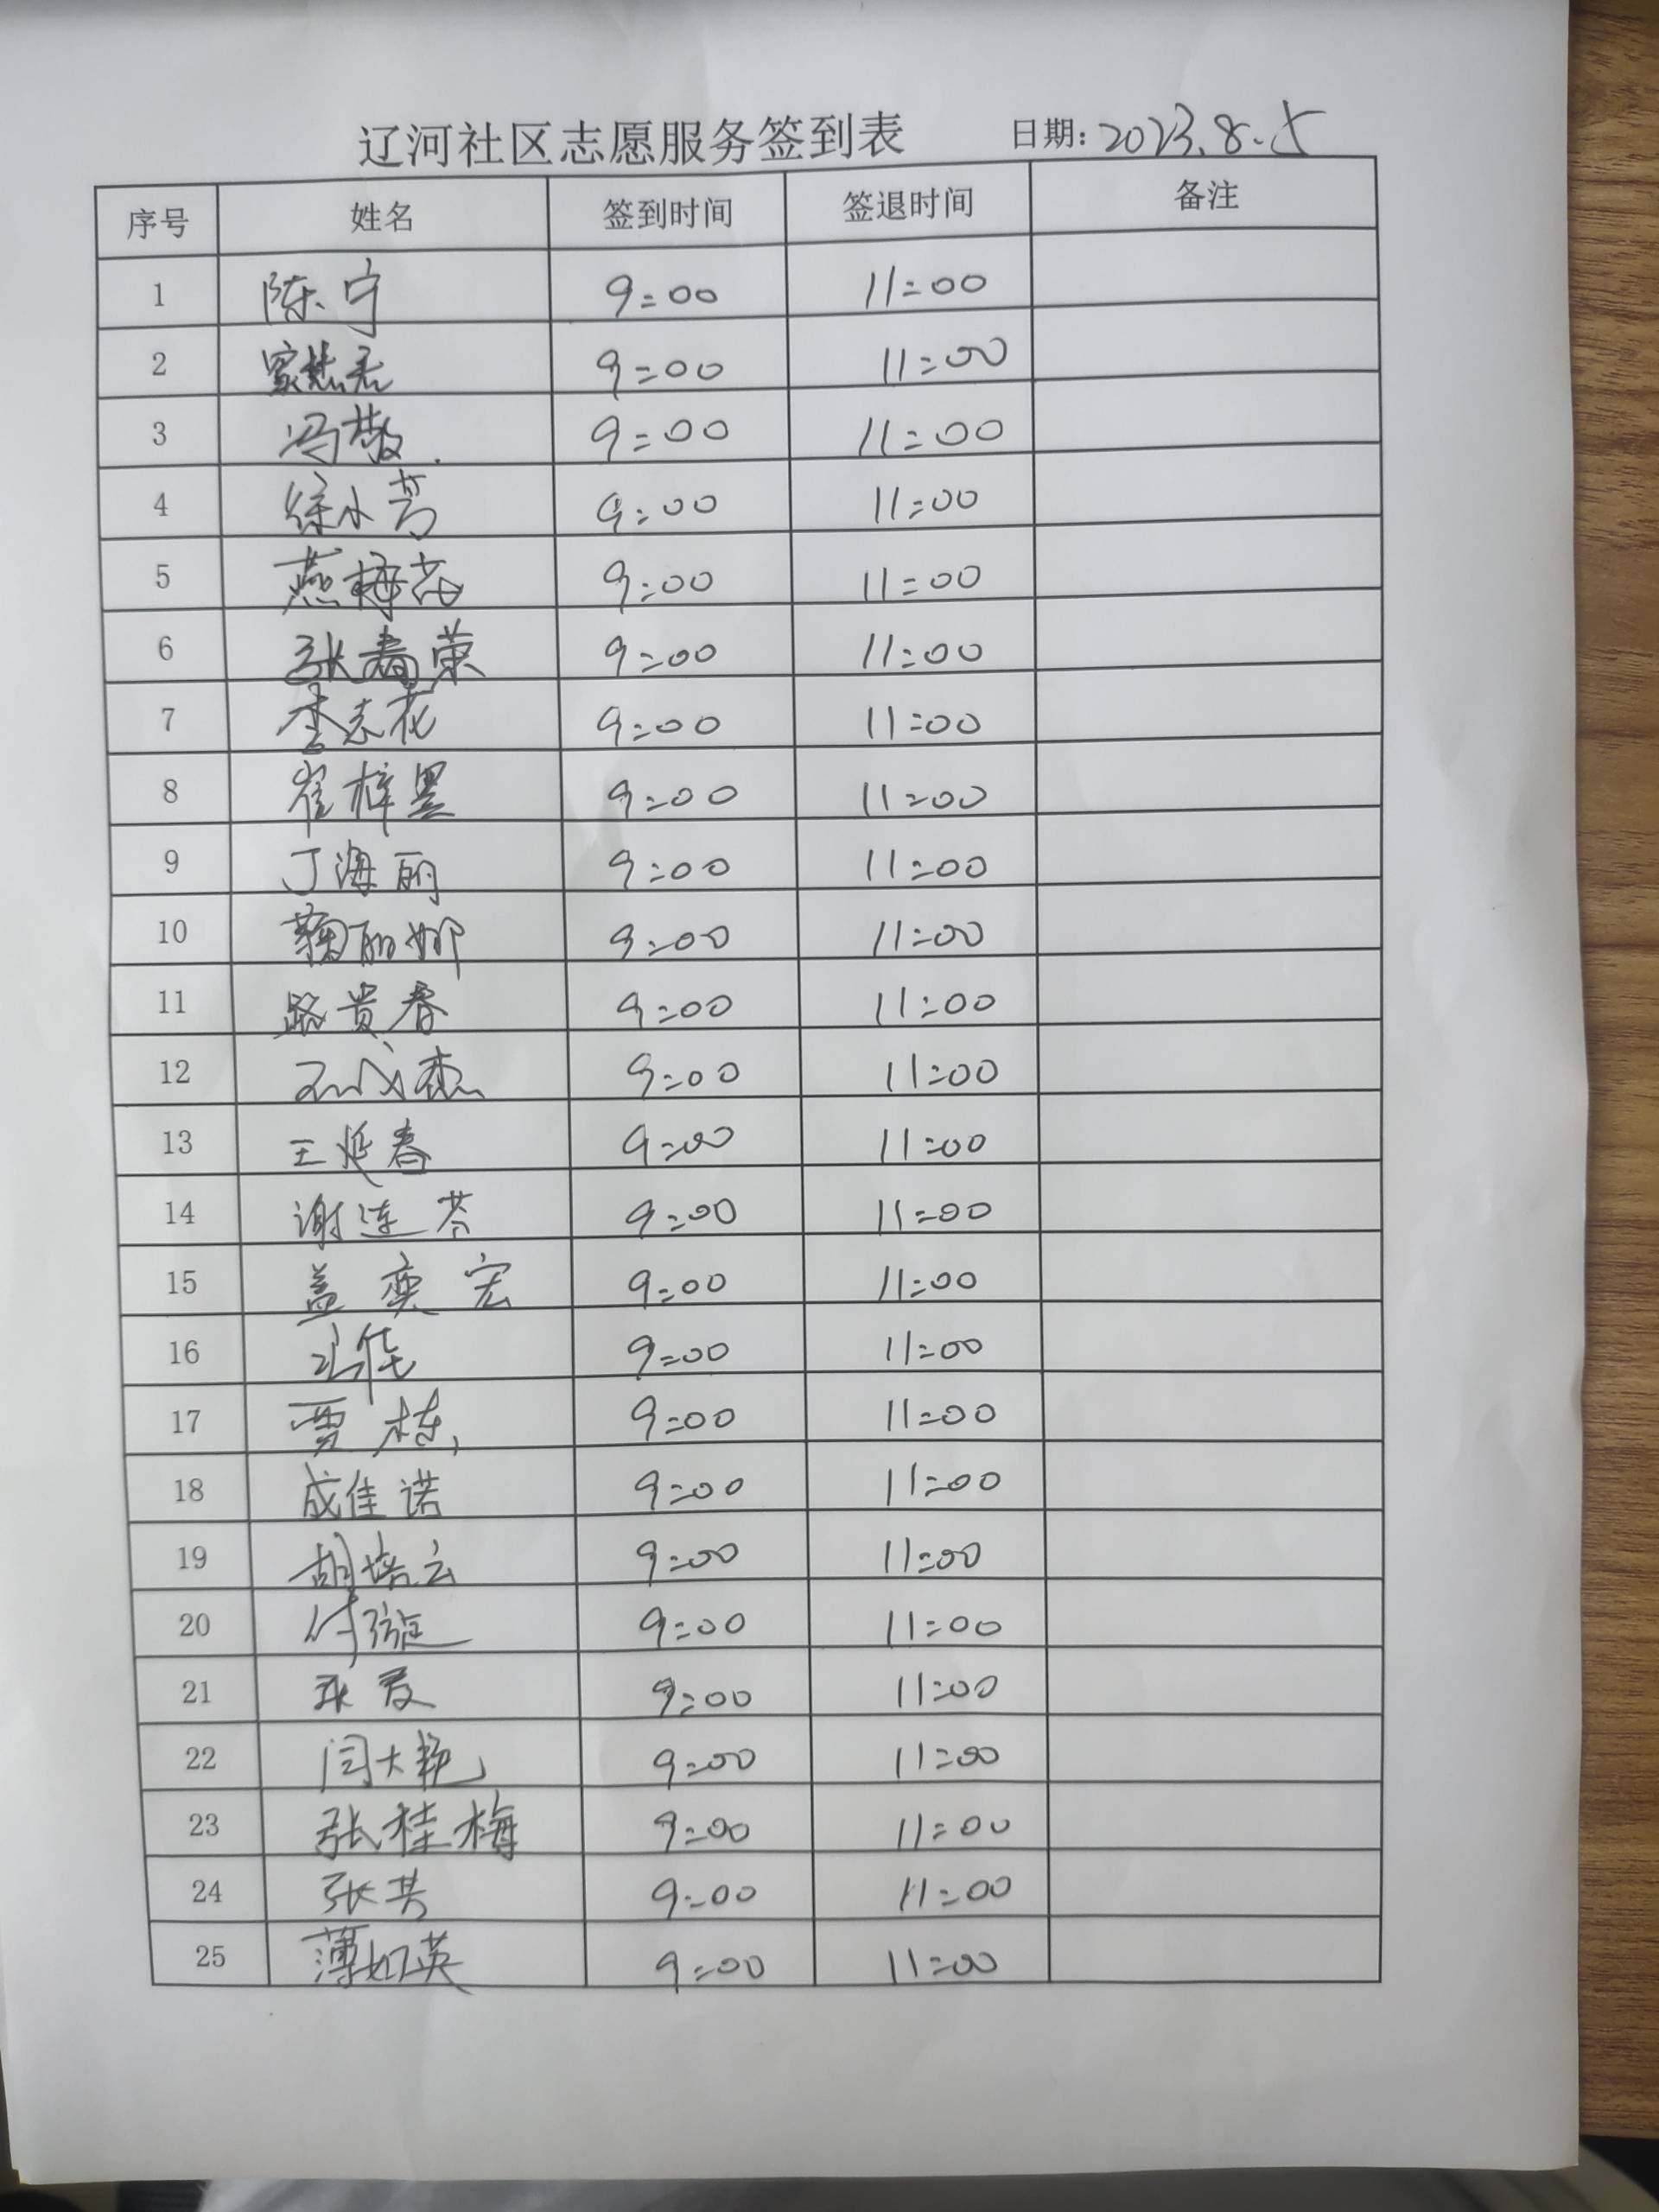 辽河社区志愿服务签到表 日期: 2023.8.5
序号 姓名 签到时间 签退时间 备注
1 陈宁 9:00 11:00
2 9:00 11:00
3 冯敬 9:00 11:00
4 徐小芳 9:00 11:00
5 燕梅花 9:00 11:00
6 张春荣 9:00 11:00
7 李志花 9:00 11:00
8 崔梓墨 9:00 11:00
9 丁海丽 9:00 11:00
10 鞠丽娜 9:00 11:00
11 路贵春 9:00 11:00
12 9:00 11:00
13 王延春 9:00 11:00
14 谢连芬 9:00 11:00
15 盖奕宏 9:00 11:00
16 9:00 11:00
17 贾栋 9:00 11:00
18 成佳诺 9:00 11:00
19 胡培云 9:00 11:00
20 付璇 9:00 11:00
21 9:00 11:00
22 闫大艳 9:00 11:00
23 张桂梅 9:00 11:00
24 张芳 9:00 11:00
25 薄如英 9:00 11:00